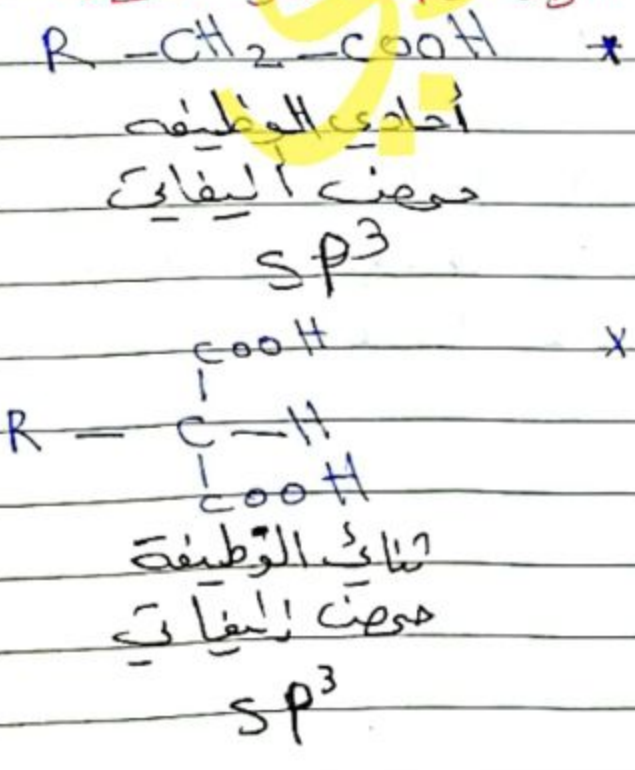 R - CH2 - COOH *
أحادي الوظيفه
حمض أليفاتي
sp3
COOH *
R - C - H
COOH
ثنائي الوظيفة
حمض إليفاتي
sp3